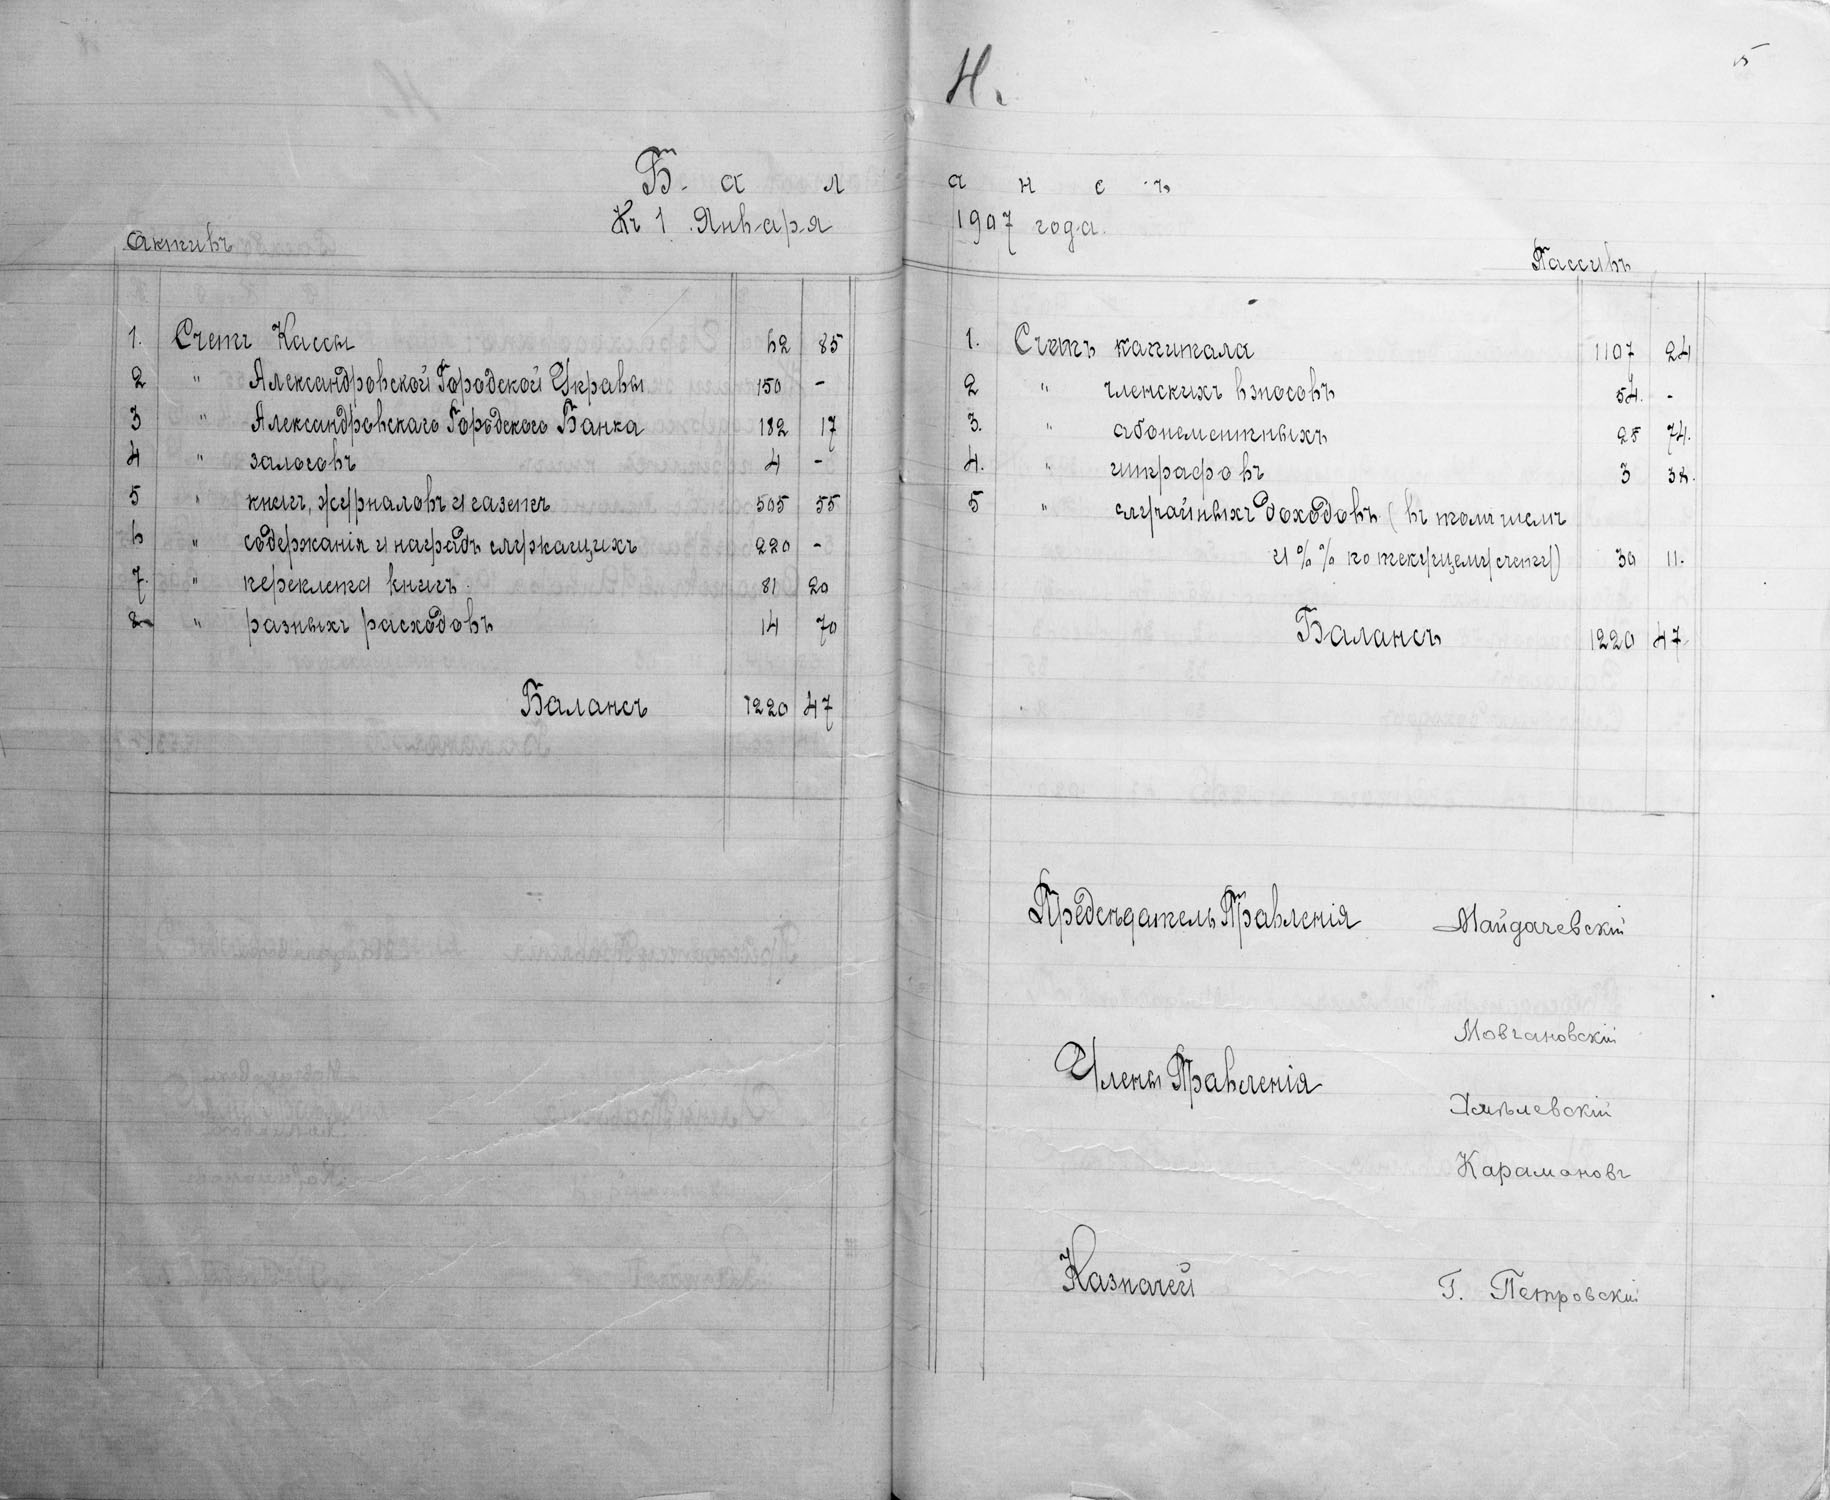 Н.
5
Балансъ
Къ 1 Января 1907 года.
Активъ
1. Счетъ Кассы 62 85
2 " Александровской Городской Управы 150 -
3 " Александровскаго Городского Банка 182 17
4 " залоговъ 4 -
5 " книгъ, журналовъ и газетъ 505 55
6 " содержанія и наградъ служащихъ 220 -
7. " переплета книгъ 81 20
8 " разныхъ расходовъ 14 70
Балансъ 1220 47
Пассивъ
1. Счетъ капитала 1107 24
2 " членскихъ взносовъ 54. -
3. " абонементныхъ 25 74.
4. " штрафовъ 3 38.
5 " случайныхъ доходовъ (въ томъ числѣ
и %% по текущему счету) 30 11.
Балансъ 1220 47
Предсѣдатель Правленія Майдачевскій
Мовчановскій
Члены Правленія
Хмѣлевскій
Карамановъ
Казначей Г. Петровскій